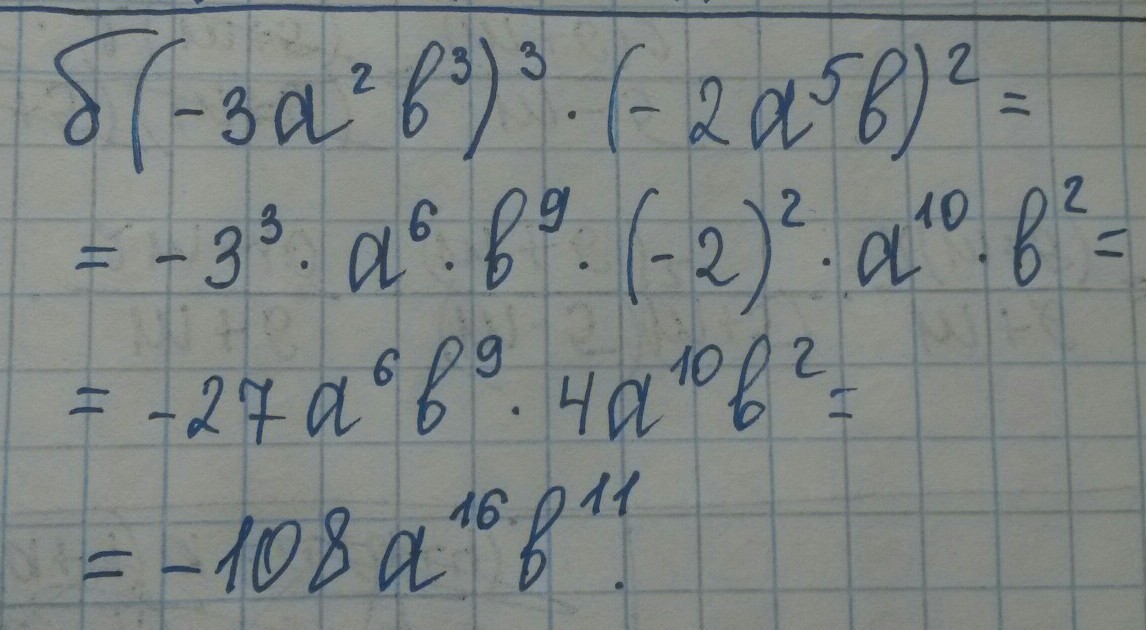 б (-3a² b³)³ · (-2a⁵b)² =
= -3³ · a⁶ · b⁹ · (-2)² · a¹⁰ · b² =
= -27a⁶b⁹ · 4a¹⁰b² =
= -108a¹⁶b¹¹.